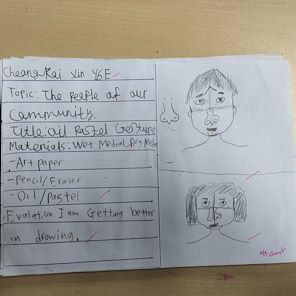 Cheang Kai Xin Y6E
Topic: The people of our
Community.
Title: oil Pastel Gesture
Materials: Wet Medical, Dry Media
- Art paper
- Pencil/Eraser
- Oil/pastel
Evaluation. I am Getting better
in drowing.